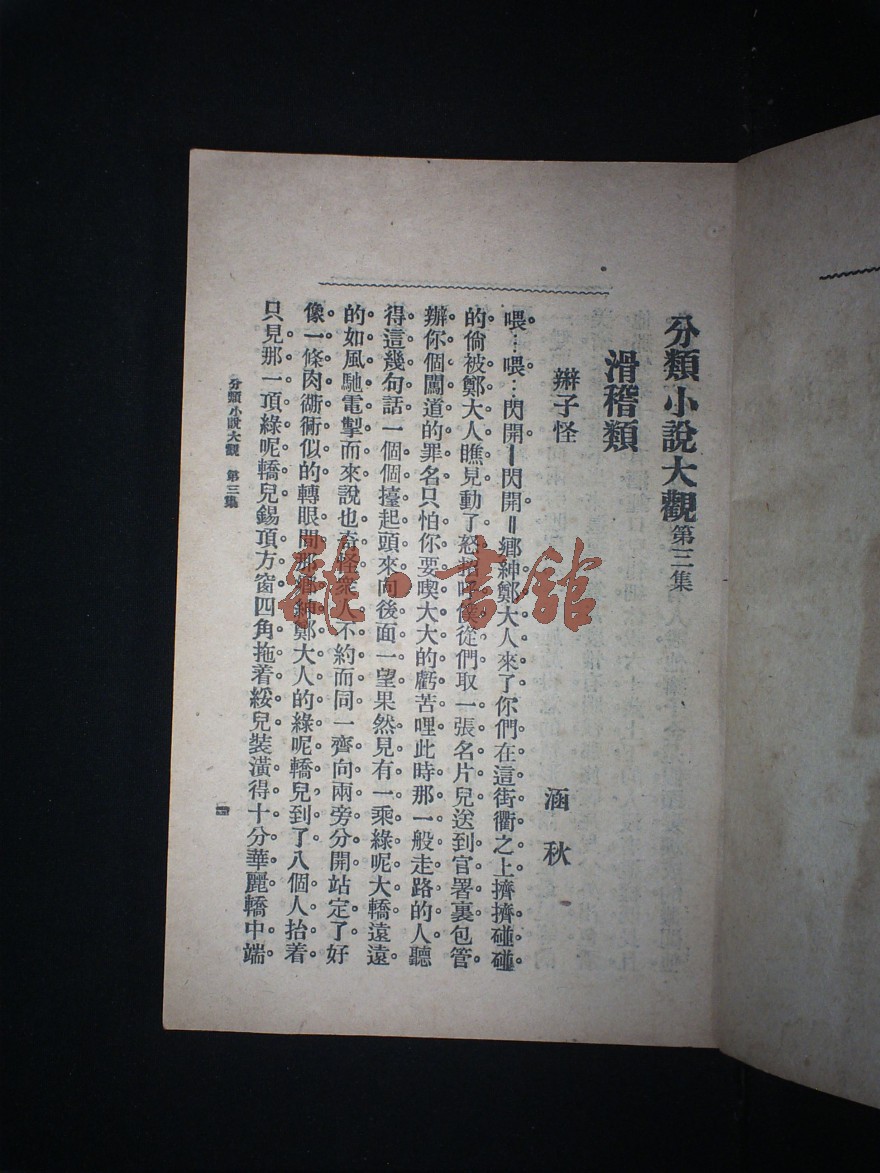 分類小說大觀 第三集
滑稽類
辮子怪 涵秋
喂⋯喂⋯閃開︱閃開‖鄉紳鄭大人來了你們在這街衢之上擠擠碰碰
的倘被鄭大人瞧見動了怒招呼僕從們取一張名片兒送到官署裏包管
辦你個闖道的罪名只怕你要喫大大的虧苦哩此時那一般走路的人聽
得這幾句話一個個擡起頭來向後面一望果然見有一乘綠呢大轎遠遠
的如風馳電掣而來說也奇怪衆人不約而同一齊向兩旁分開站定了好
像一條肉衚衕似的轉眼間那鄉紳鄭大人的綠呢轎兒到了八個人抬着
只見那一頂綠呢轎兒錫頂方窗四角拖着綏兒裝潢得十分華麗轎中端
分類小說大觀 第三集
雜·書館